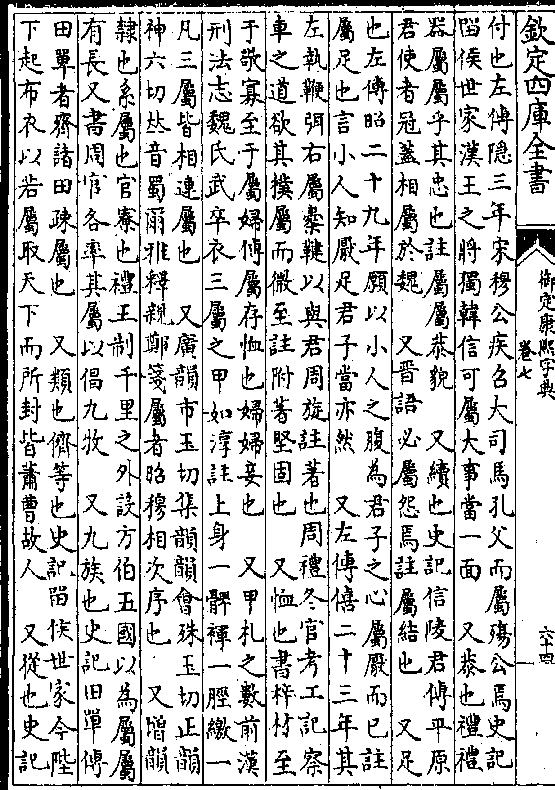 欽定四庫全書
御定康熙字典
卷七
六十四
付也左傳隱三年宋穆公疾召大司馬孔父而屬殤公焉史記
留侯世家漢王之將獨韓信可屬大事當一面　又恭也禮禮
器屬屬乎其忠也註屬屬恭貌　又續也史記信陵君傳平原
君使者冠蓋相屬於魏　又晉語必屬怨焉註屬結也　又足
也左傳昭二十九年願以小人之腹為君子之心屬厭而已註
屬足也言小人知厭足君子當亦然　又左傳僖二十三年其
左執鞭弭右屬櫜鞬以與君周旋註著也周禮冬官考工記察
車之道欲其樸屬而微至註附著堅固也　又恤也書梓材至
于敬寡至于屬婦傳屬存恤也婦婦妾也　又甲札之數前漢
刑法志魏氏武卒衣三屬之甲如淳註上身一髀褌一脛繳一
凡三屬皆相連屬也　又廣韻市玉切集韻韻會殊玉切正韻
神六切𠀤音蜀爾雅釋親鄭箋屬者昭穆相次序也　又增韻
隸也系屬也官寮也禮王制千里之外設方伯五國以為屬屬
有長又書周官各率其屬以倡九牧　又九族也史記田單傳
田單者齊諸田疎屬也　又類也儕等也史記留侯世家今陛
下起布衣以若屬取天下而所封皆蕭曹故人　又從也史記